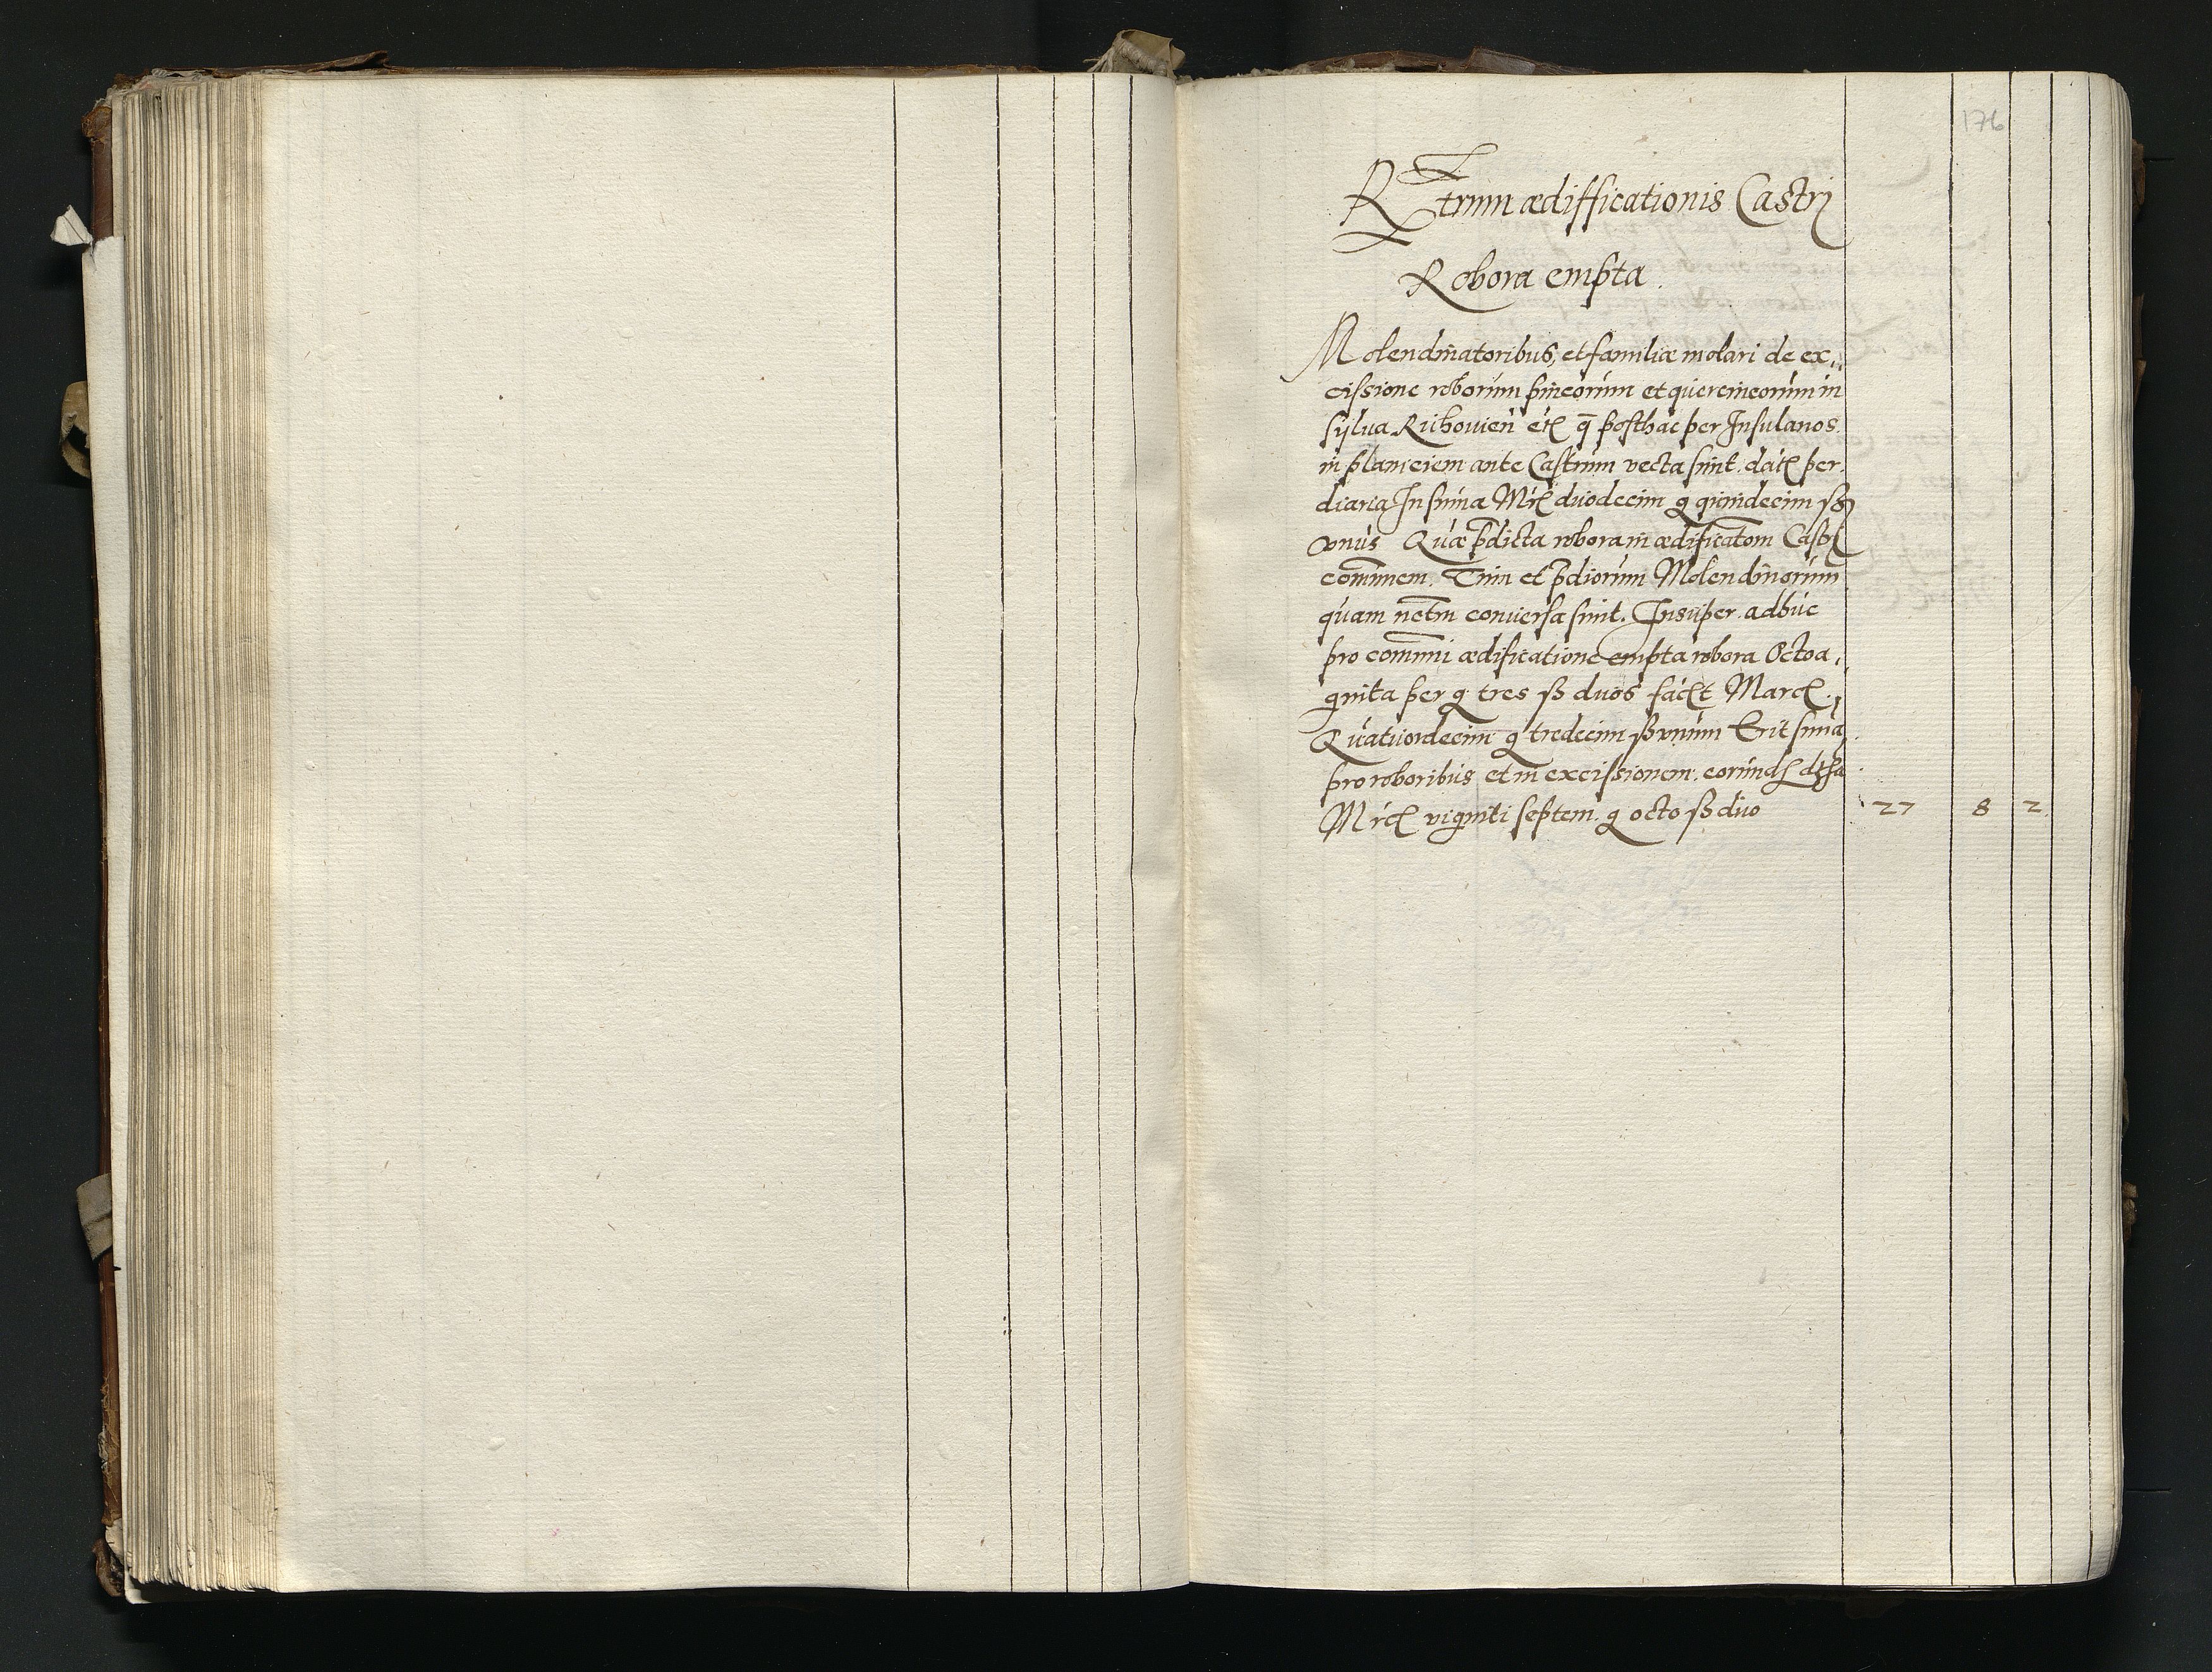 176
Rtrum ædifficationis Castrj
Robora empta.
Molendinatoribus, et familiæ molari de ex,,
cissione roborum pineorum et quercineorum in
sylua Richouien̄ etc̄ q̄ posthac per Insulanos
in planiciem ante Castrum vecta sunt. dat̄ per
diaria In sum̄a Mrc̄ duodecim g quindecim ß
vnus Quæ p̄dicta robora in ædificatom̄ Castrj
com̄unem. Tum et p̄diorum Molendinorum
quam conuersa sunt. Insuper. adhuc
pro com̄uni ædificatione empta robora Octoa,,
ginta per g tres ß duos fac̄t Marc̄.
Quatuordecim g tredecim ß vnum Erit sum̄a
pro roboribus et in excissionem. eorund
Mrc̄ viginti septem. g octo ß duo 27 8 2